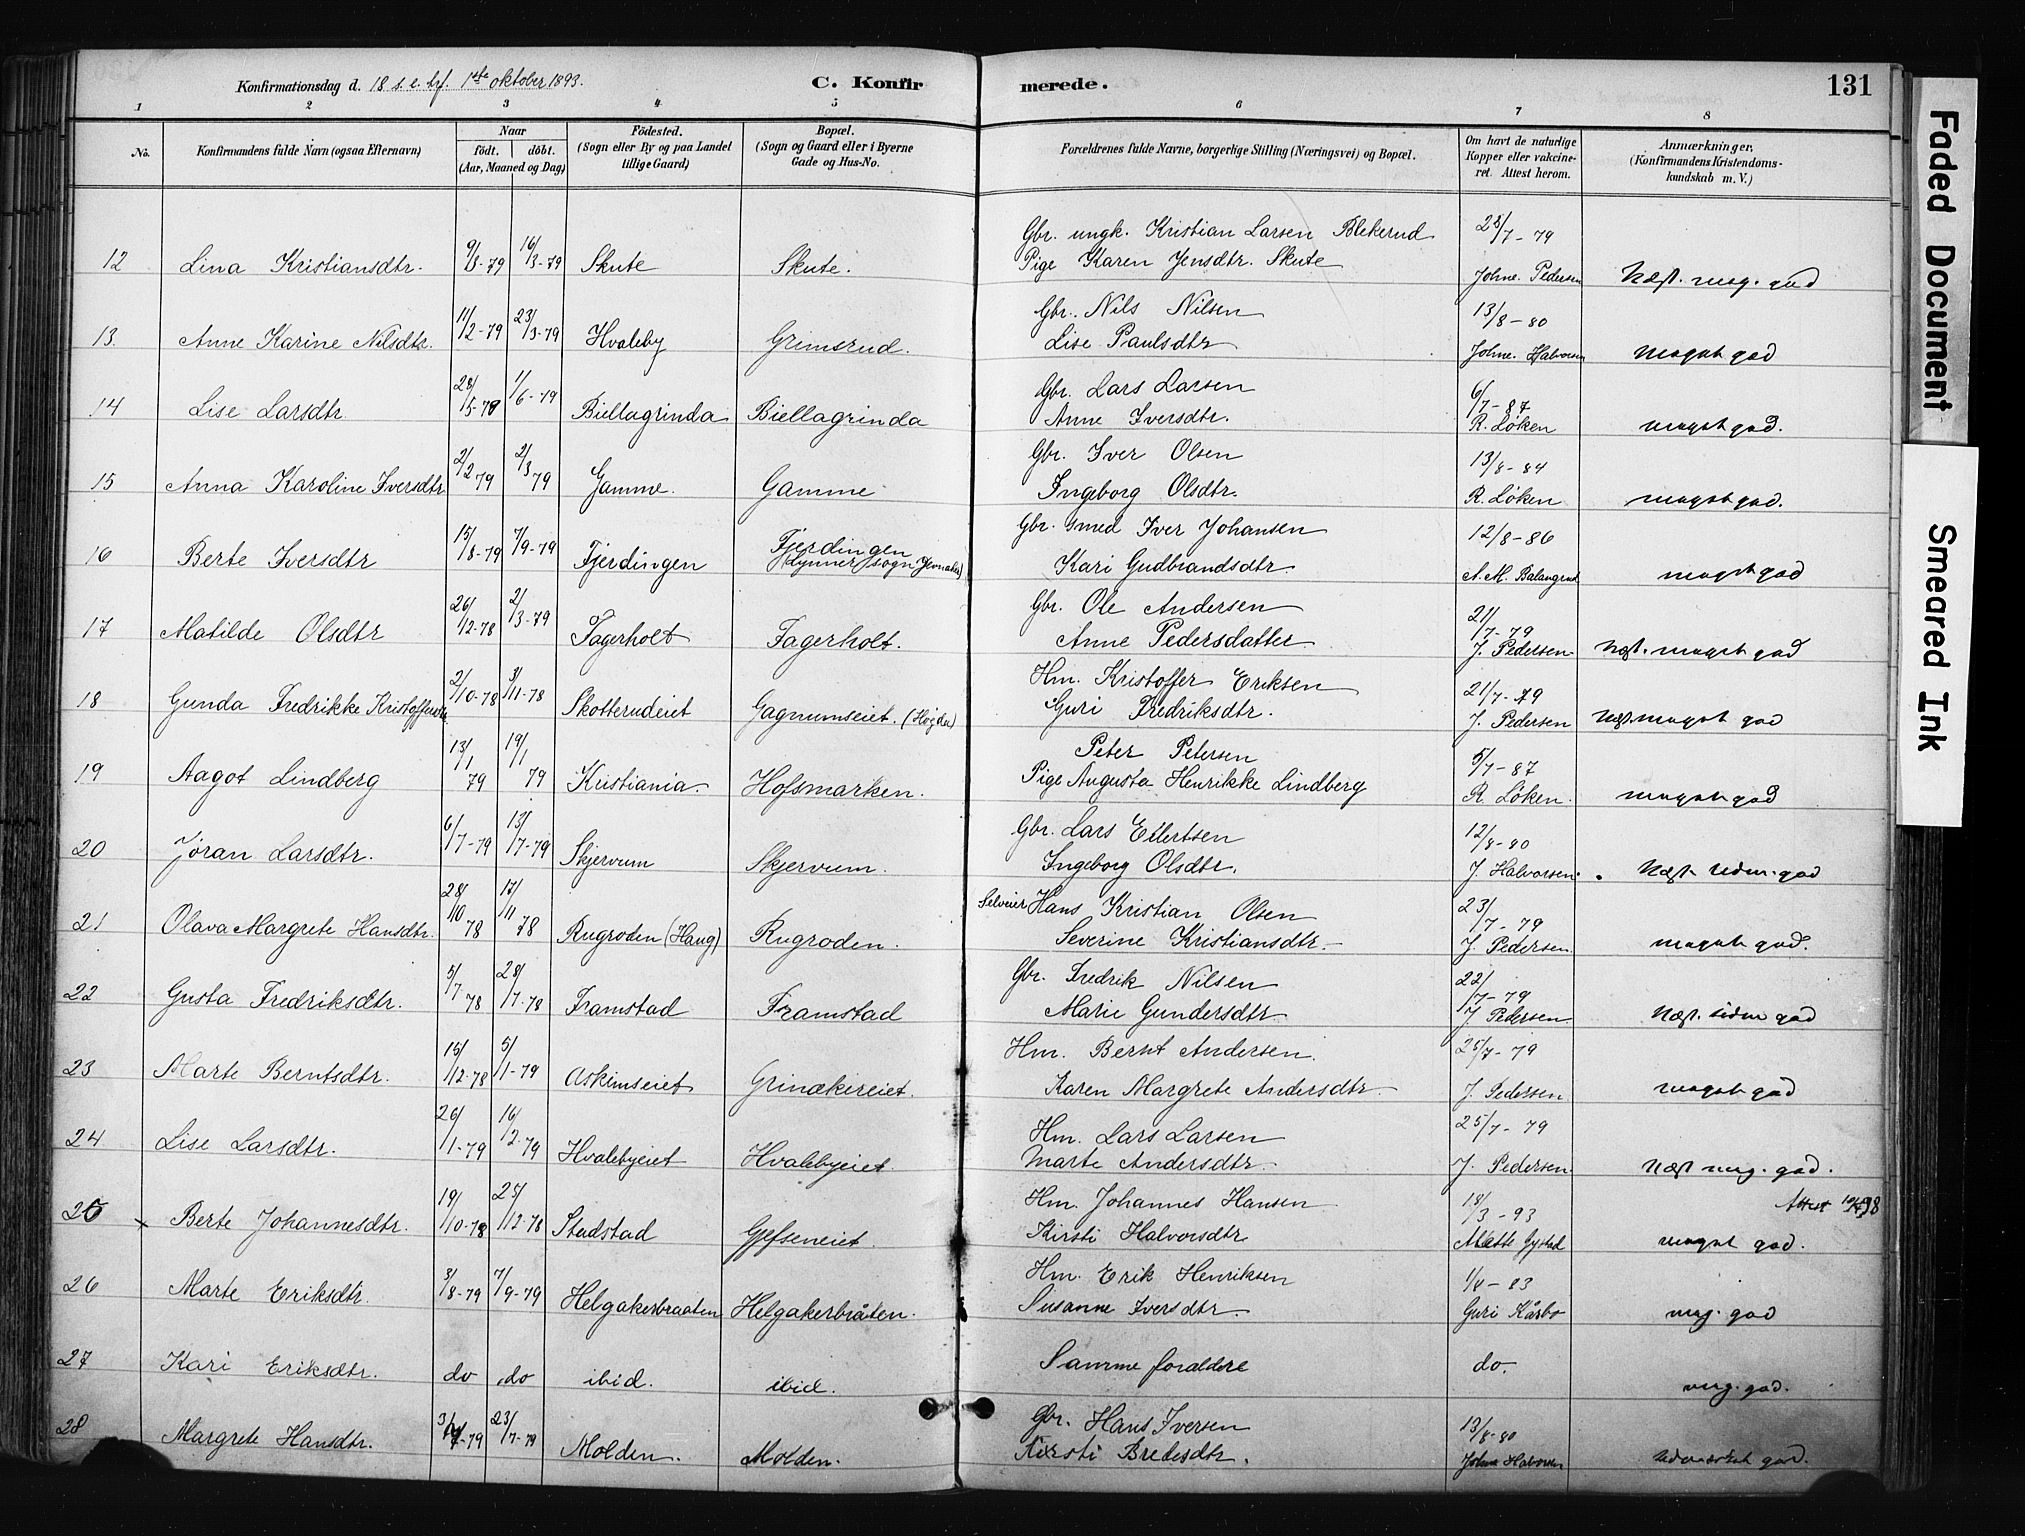 Konfirmationsdag d. 18 s. e. trf. 1ste oktober 1893.
C. Konfirmerede.
131
1 2 3 4 5 6 7 8
No.
Konfirmandens fulde Navn (ogsaa Efternavn)
Naar
født. døbt.
(Aar, Maaned og Dag)
Födested.
(Sogn eller By og paa Landet tillige Gaard)
Bopæl.
(Sogn og Gaard eller i Byerne Gade og Hus-No.
Forældrenes fulde Navne, borgerlige Stilling (Næringsvei) og Bopæl.
Om havt de naturlige Kopper eller vakcineret. Attest herom.
Anmærkninger.
(Konfirmandens Kristendomskundskab m. V.)
12 Lina Kristiansdtr. 9/3-79 16/3-79 Skute Skute. Gbr. ungk. Kristian Larsen Blekerud 28/7-79
Pige Karen Jensdtr. Skute Johne. Pedersen Næst. meg. god
13. Anne Karine Nilsdtr. 11/2-79 23/3-79 Hvaleby Grimsrud. Gbr. Nils Nilsen 13/8-80
Lise Paulsdtr Johne. Halvorsen meget god
14 Lise Larsdtr 28/5-79 1/6-79 Biellagrinda Biellagrinda Gbr. Lars Larsen 6/7-87
Anne Iversdtr. R. Løken meget god.
15 Anna Karoline Iversdtr 2/2 79 2/3 79 Gamme. Gamme Gbr. Iver Olsen 13/8-84
Ingeborg Olsdtr. R. Løken meget god.
16 Berte Iversdtr 15/8-79 7/9-79 Fjerdingen Fjerdingen Gbr. smed Iver Johansen 12/8-86
Kari Gudbrandsdtr. A. M. Balangrud meget god
17 Matilde Olsdtr 26/12-78 2/3-79 Fagerholt Fagerholt. Gbr. Ole Andersen 21/7-79
Anne Pedersdatter J. Pedersen Næst. meget god
18 Gunda Fredrikke Kristoffersdtr 2/10-78 3/11-78 Skotterudeiet Gagnumseiet. Hm. Kristoffer Eriksen 21/7-79
Guri Fredriksdtr. J. Pedersen Næst. meget god
19 Aagot Lindberg 13/1 79 19/1 79 Kristiania. Hofsmarken. Peter Petersen 5/7-87
Pige Augusta Henrikke Lindberg R. Løken. meget god
20 Joran Larsdtr. 6/7-79 13/7-79 Skjervum Skjervum. Gbr. Lars Eilertsen 12/8-80
Ingeborg Olsdtr. J. Halvorsen. Næst. udm. god
21 Olava Margrete Hansdtr. 28/10 78 17/11 78 Rugroden (Haug) Rugroden. Selveier Hans Kristian Olsen 23/7-79
Severine Kristiansdtr. J. Pedersen. meget god.
22 Gusta Fredriksdtr. 5/7 78 28/7-78 Framstad Framstad Gbr. Fredrik Nilsen 22/7-79
Marie Gundersdtr J Pedersen. Næst. udm god
23 Marte Berntsdtr. 15/12-78 5/1-79 Askimseiet Grinækireiet. Hm. Bernt Andersen. 25/7-79
Karen Margrete Andersdtr. J. Pedersen meget god
24 Lise Larsdtr. 26/1-79 16/2-79 Hvalebyeiet Hvalebyeiet Hm. Lars Larsen 25/7-79
Marte Andersdtr. J. Pedersen. Næst meg. god.
25 Berte Johannesdtr. 19/10-78 25/12-78 Stadstad Gjefseneiet. Hm. Johannes Hansen 18/3-93 Attest
Kirsti Halvorsdtr meget god.
26 Marte Eriksdtr. 3/8-79 7/9-79 Helgakerbraaten Helgakerbråten. Hm. Erik Henriksen
Susanne Iversdtr. Guri Kårbo meg. god
27 Kari Eriksdtr. do do ibid. ibid. Samme forældre do. meg. god.
28 Margrete Hansdtr. 23/7-79 Molden. Molden. Gbr. Hans Iversen 13/8-80
Kirsti Bredesdtr. Johne Halvorsen god.
Faded Document
Smeared Ink